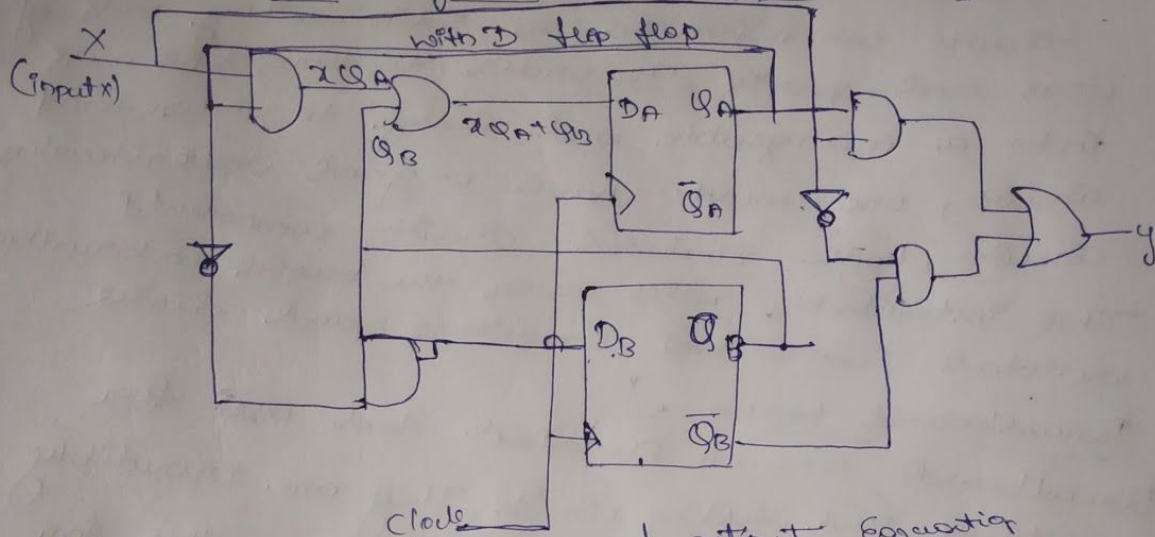 with D flap flop
X
(input x)
xQA
QB
xQA+QB
DA QA
Q̅A
DB Q̅B
Q̅B
y
Clock